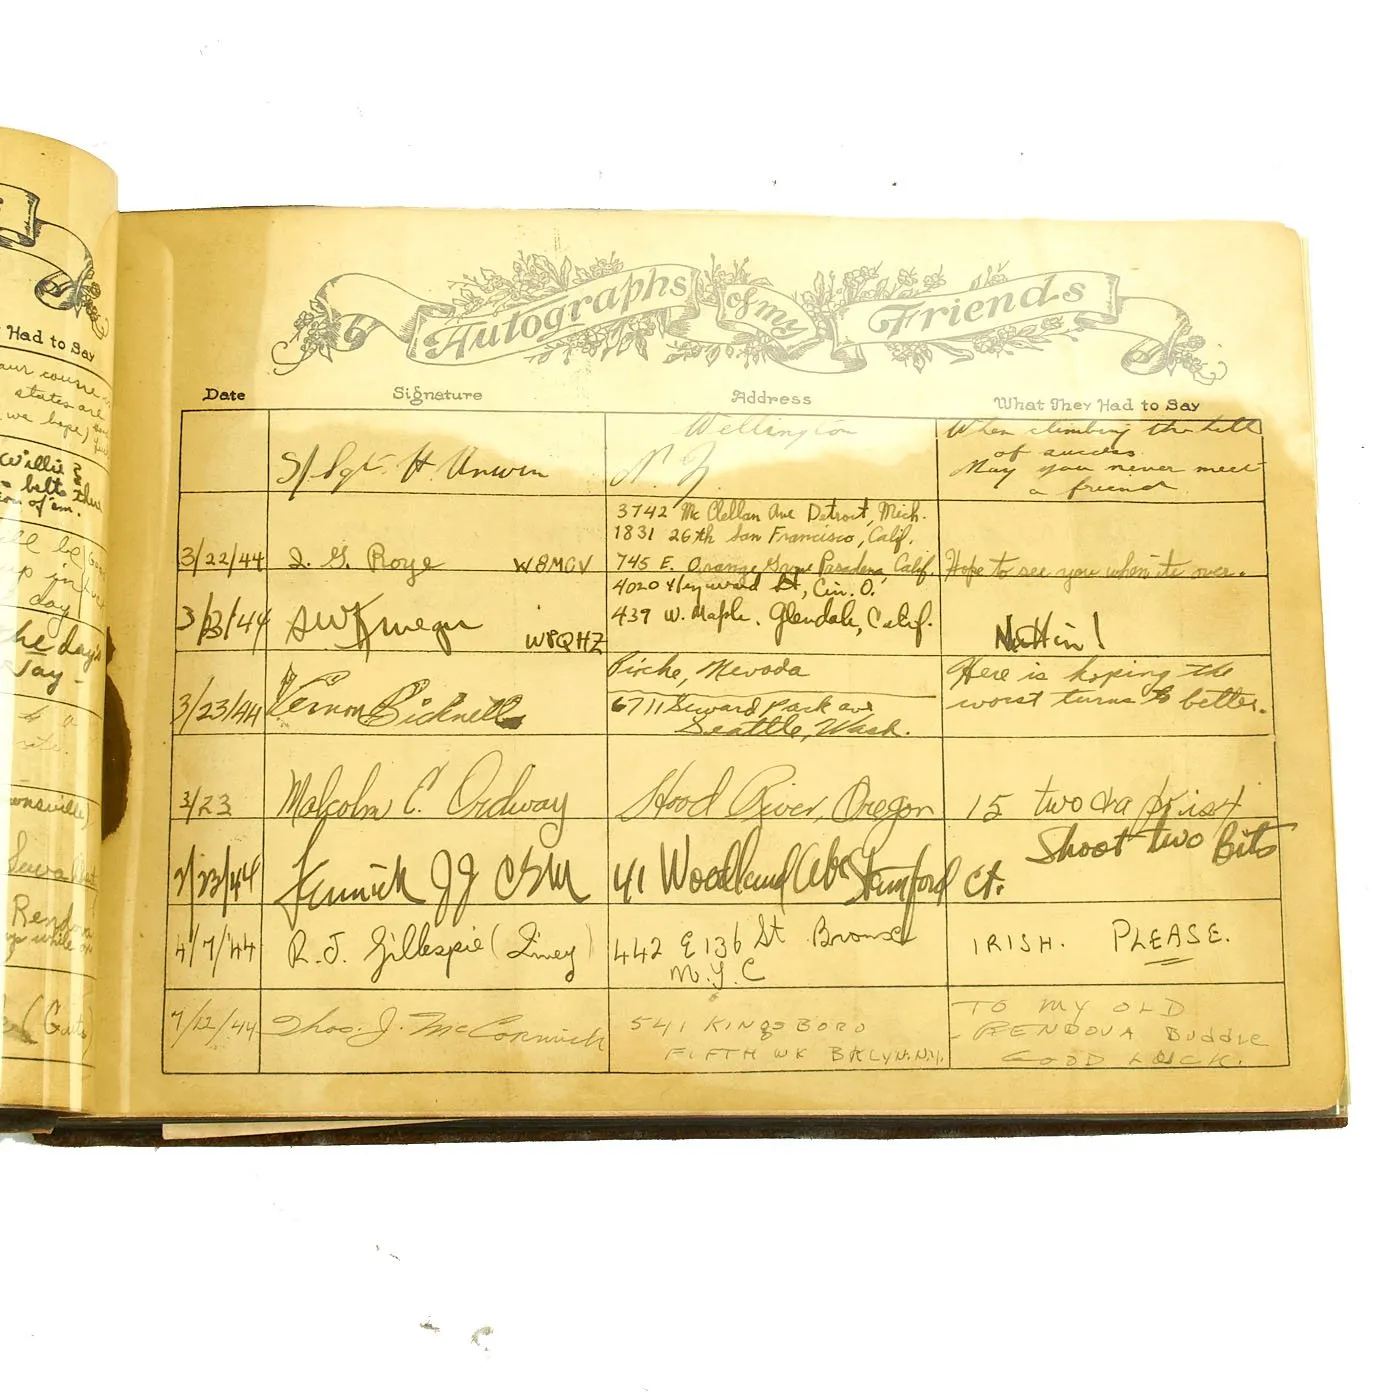 Had to Say
our course
states are
we hope)
Willie &
belts
of 'em.
day
the day's
Autographs of my Friends
Date Signature Address What They Had to Say
S/Sgt. H. Unwin Wellington N. Z. When climbing the hill
of success
May you never meet
a friend
3742 Mc Clellan Ave Detroit, Mich.
1831 26th San Francisco, Calif.
3/22/44 I. G. Roye W8MCV 745 E. Orange Grove Pasadena, Calif. Hope to see you when its over.
4020 St, Cin. O.
3/23/44 W8QHZ 439 W. Maple. Glendale, Calif. Nuthin!
Nevada Here is hoping the
3/23/44 Vernon Bicknell 6711 Seward Park ave worst turns to better.
Seattle, Wash.
3/23 Malcolm E. Ordway Hood River, Oregon 15 two
Shoot two Bits
3/23/44 JJ CSM 41 Woodland Ave Stamford Ct.
4/7/44 R. J. Gillespie ( ) 442 E 136 St Bronx IRISH. PLEASE.
N.Y.C
7/12/44 Thos. J. McCormick 541 KINGSBORO TO MY OLD
FIFTH WK BKLYN. N.Y. RENDOVA BUDDIE
GOOD LUCK.